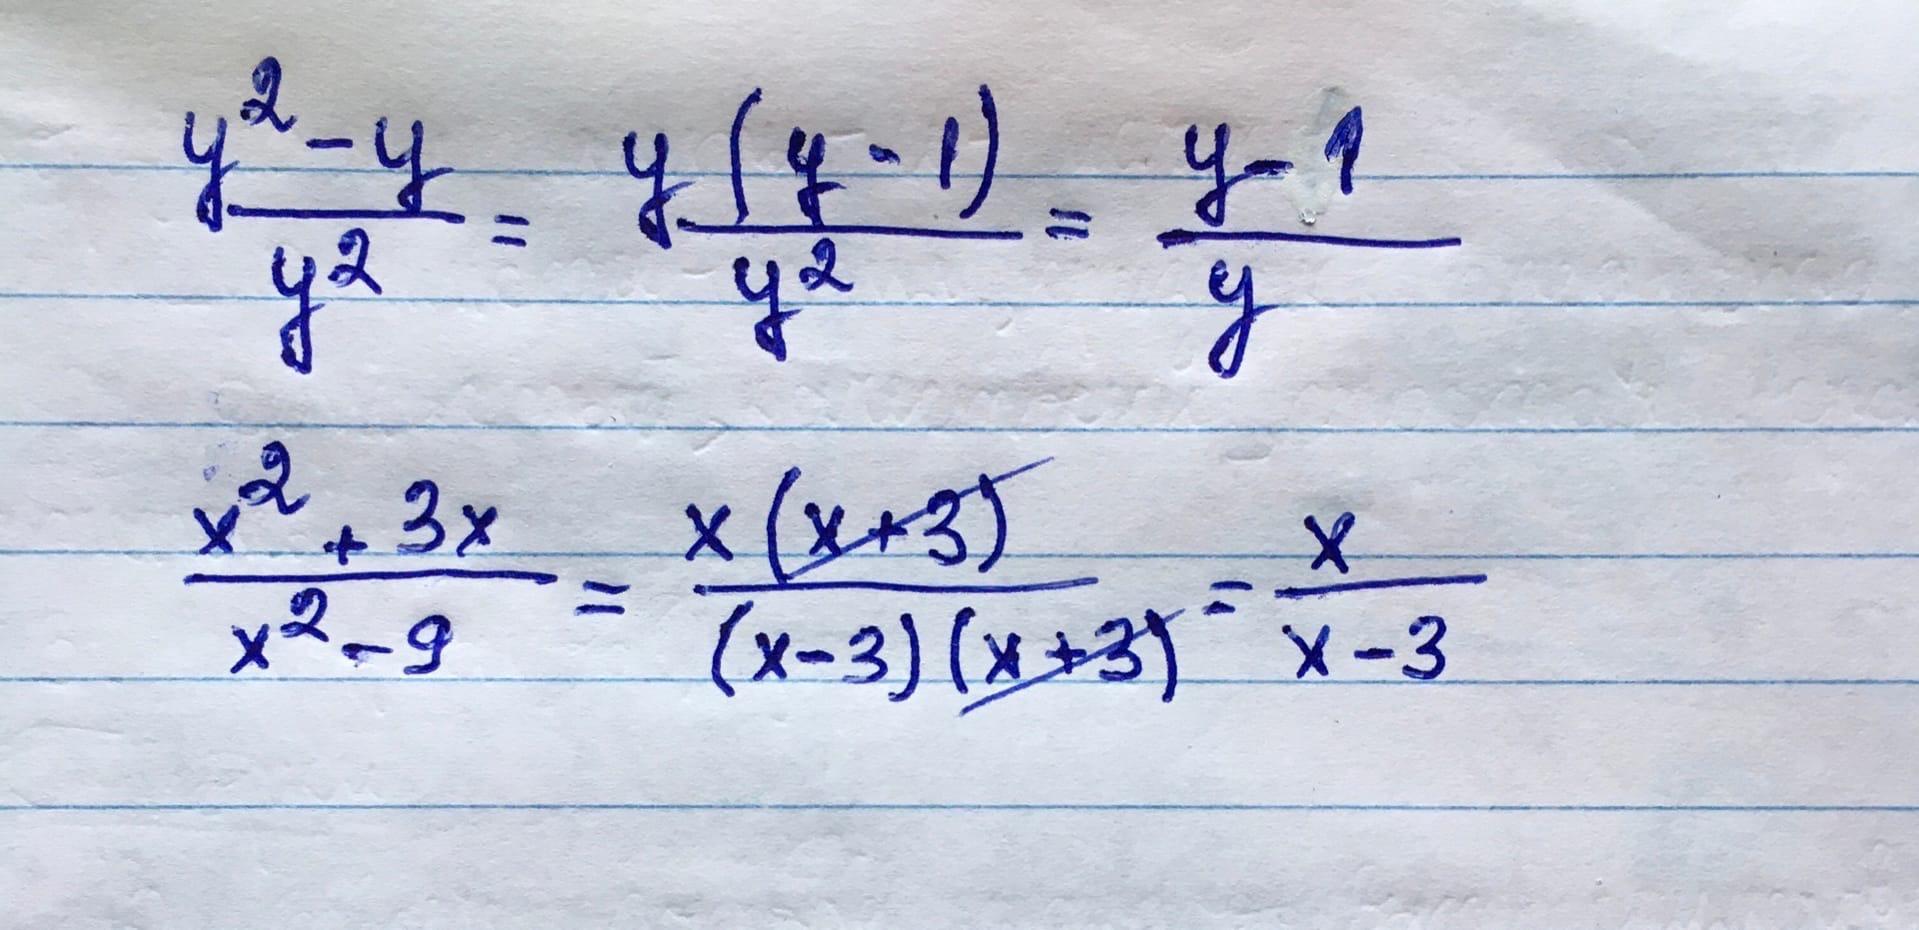 y² - y / y² = y(y - 1) / y² = y - 1 / y
x² + 3x / x² - 9 = x(x+3) / (x-3)(x+3) = x / x - 3